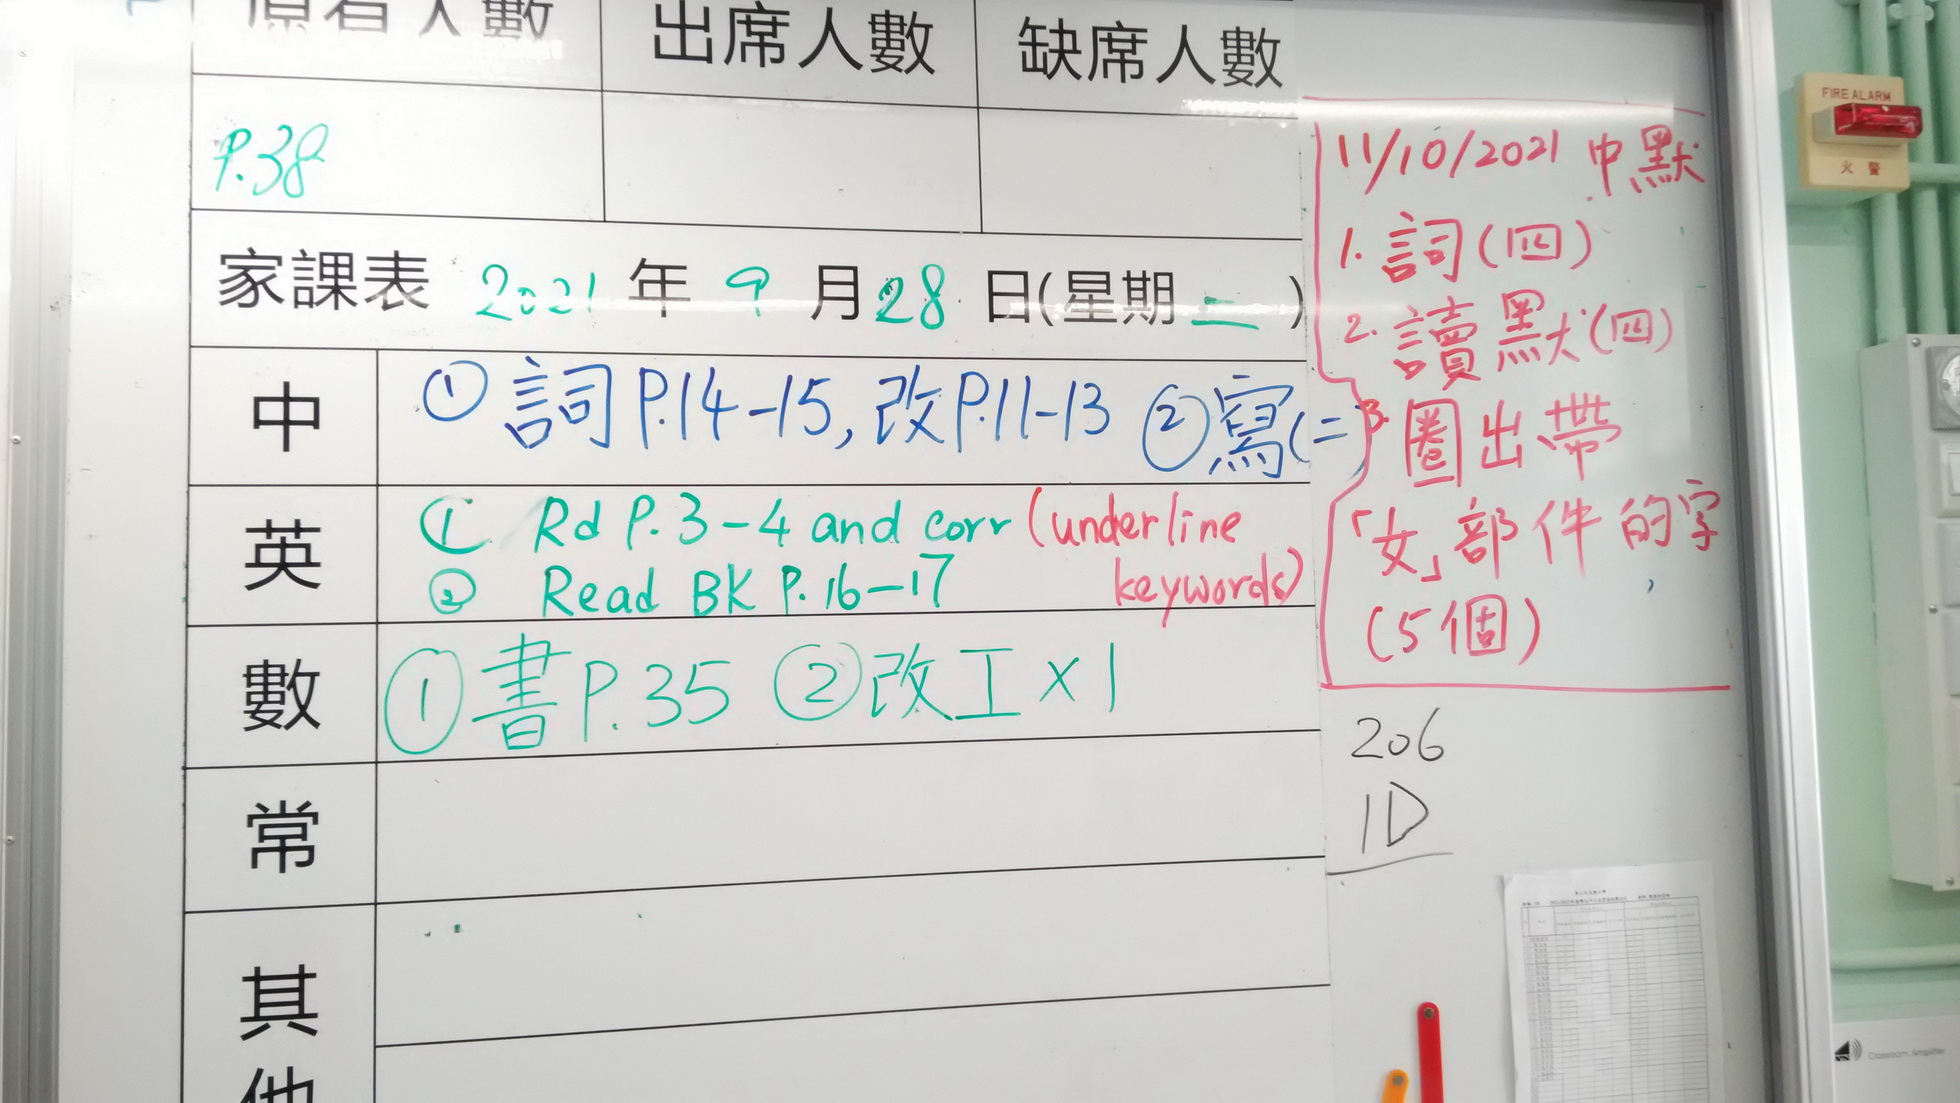 原有人數 出席人數 缺席人數
P.38
家課表 2021 年 9 月 28 日(星期 二 )
中 ① 詞 P.14-15, 改 P.11-13 ② 寫(二)
英 ① Rd P. 3-4 and corr (underline keywords)
② Read BK P. 16-17
數 ① 書 P.35 ② 改工 x 1
常
其他
11/10/2021 中默
1. 詞(四)
2. 讀默(四)
3. 圈出帶
「女」部件的字
(5個)
206
1D
FIRE ALARM
火警
Classroom Amplifier